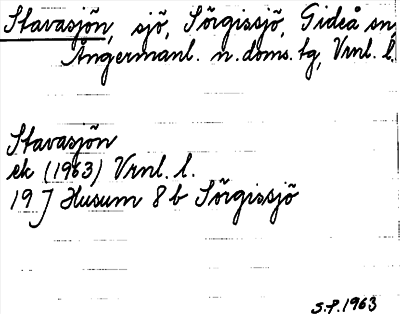 Stavasjön, sjö, Sörgissjö, Gideå sn,
Ångermanl. n. doms. tg, Vrnl. l.
Stavasjön
ek (1963) Vrnl. l.
19 J Husum 8 b Sörgissjö
S.P. 1963